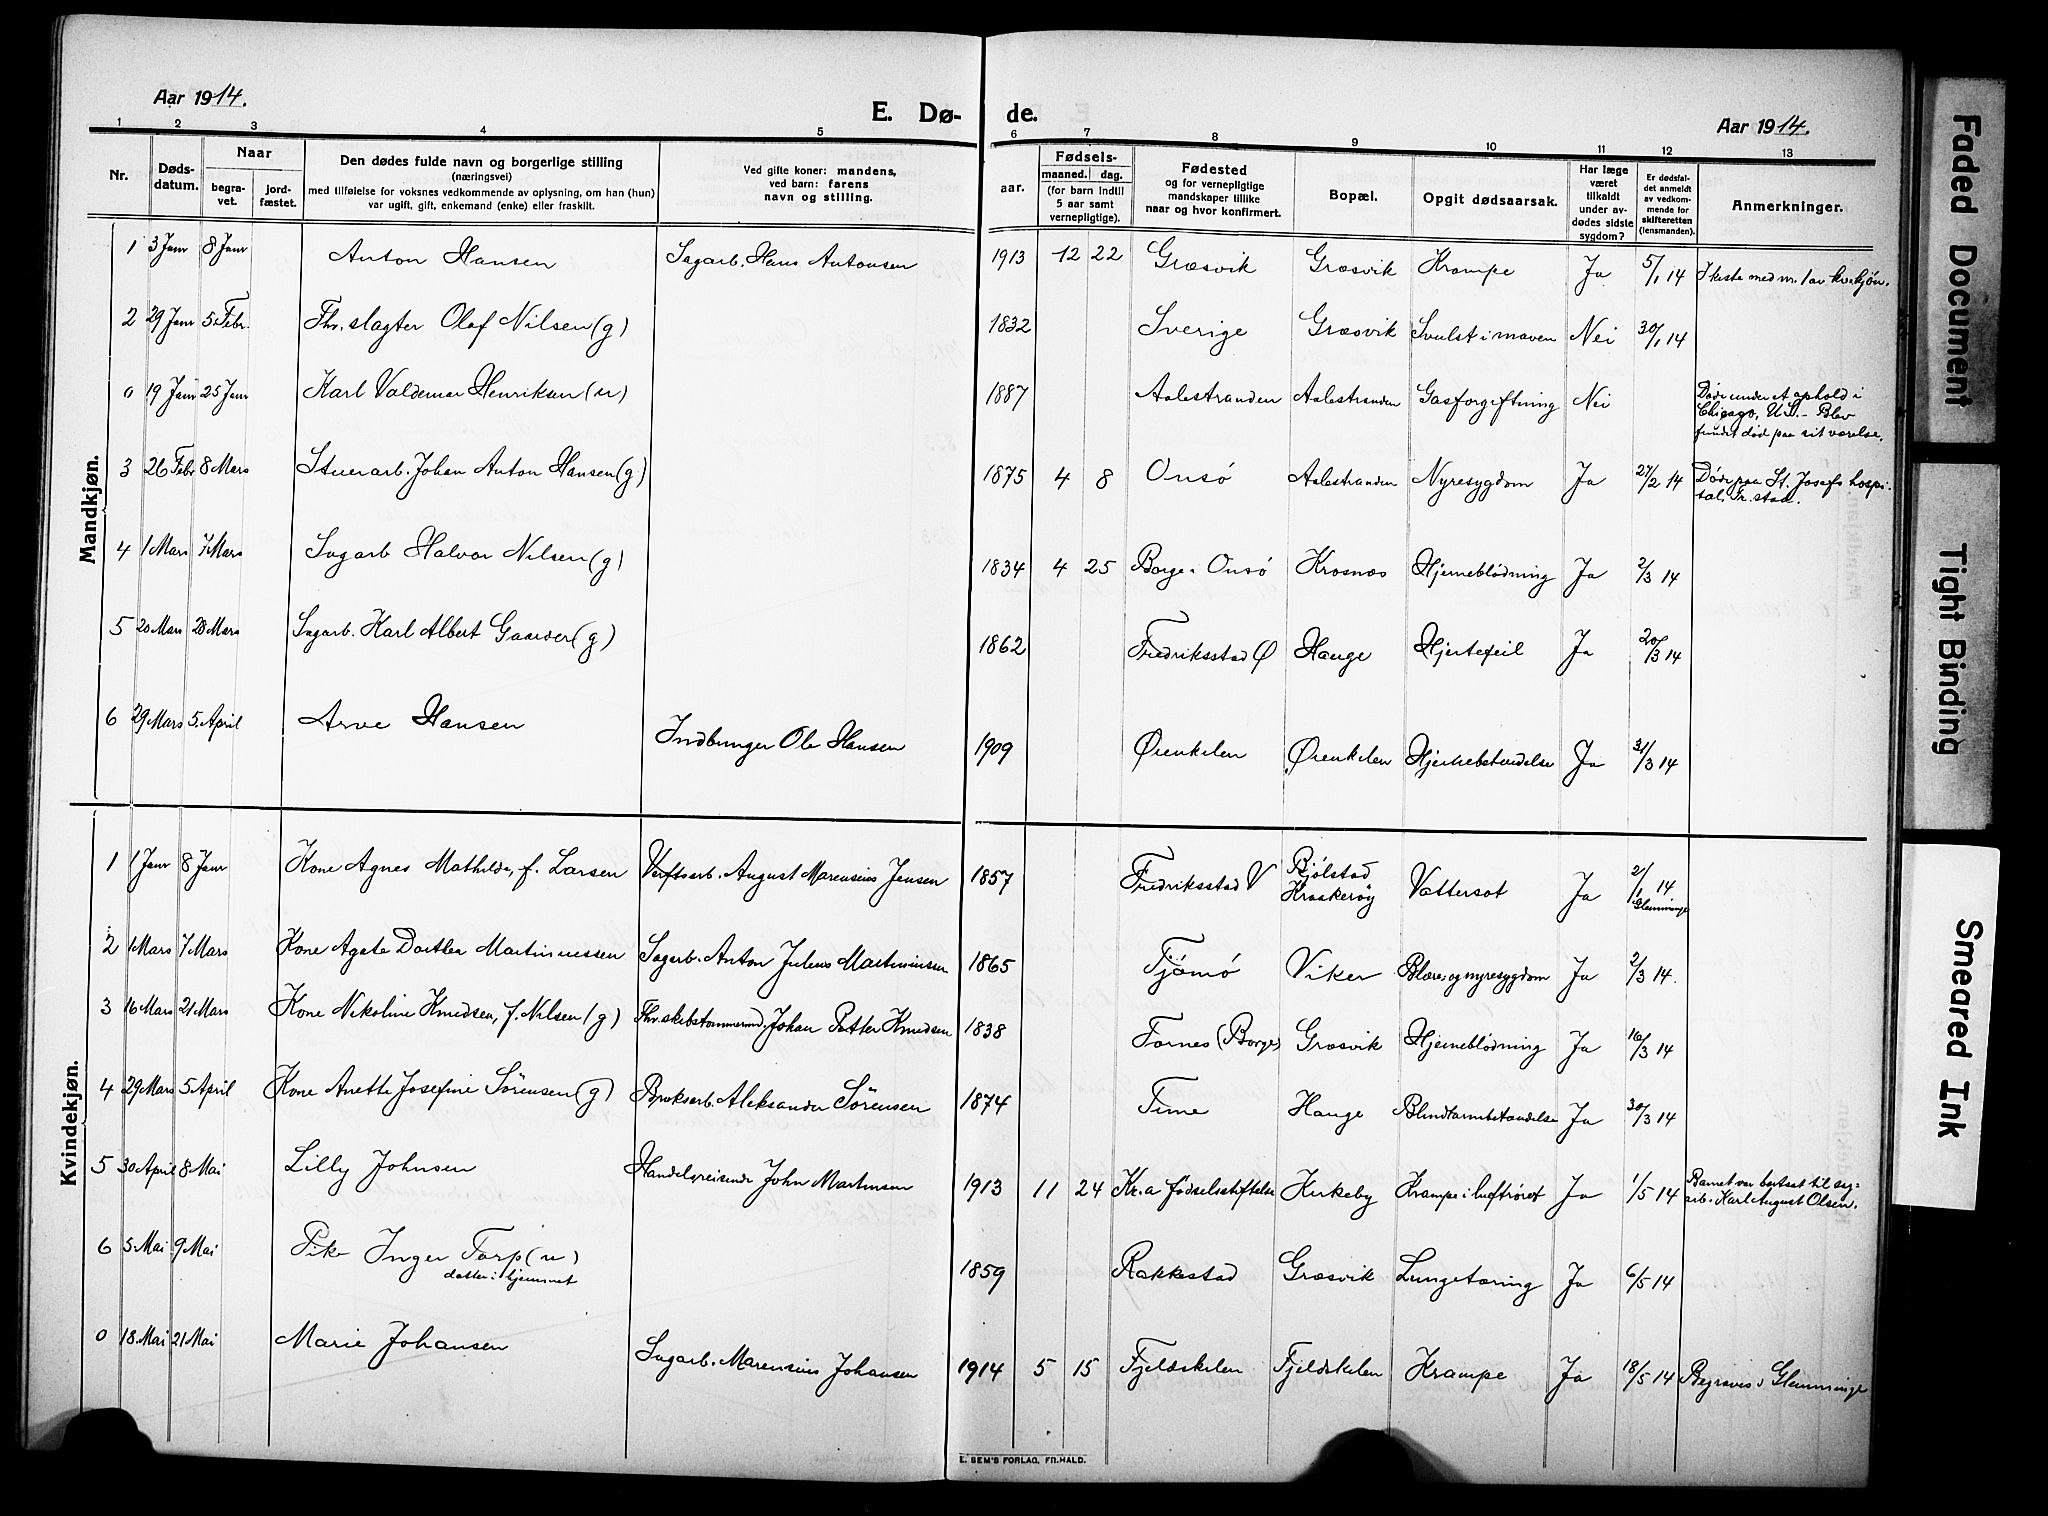 Aar 1914.
E. Dø-
de.
Aar 1914.
1 2 3 4 5 6 7 8 9 10 11 12 13
Nr.
Døds-
datum.
Naar
begra-
vet.
jord-
fæstet.
Den dødes fulde navn og borgerlige stilling
(næringsvei)
med tilføielse for voksnes vedkommende av oplysning, om han (hun)
var ugift, gift, enkemand (enke) eller fraskilt.
Ved gifte koner: mandens,
ved barn: farens
navn og stilling.
Fødsels-
aar.
maaned.
dag.
(for barn indtil
5 aar samt
vernepligtige).
Fødested
og for vernepligtige
mandskaper tillike
naar og hvor konfirmert.
Bopæl.
Opgit dødsaarsak.
Har læge
været
tilkaldt
under av-
dødes sidste
sygdom?
Er dødsfal-
det anmeldt
av vedkom-
mende for
skifteretten
(lensmanden).
Anmerkninger.
Mandkjøn.
1 3 Janr 8 Janr Anton Hansen Sagarb. Hans Antonsen 1913 12 22 Græsvik Græsvik Krampe Ja 5/1 14 I kiste med nr. 1 av kv.kjøn.
2 29 Janr 5 Febr. Fhv. slagter Olaf Nilsen (g) 1832 Sverige Græsvik Svulst i maven Nei 30/1 14
0 19 Janr 25 Janr Karl Valdemar Henriksen (u) 1887 Aalestranden Aalestranden Gasforgiftning Nei Døde under et ophold i
Chicago, U.S. - Blev
fundet død paa sit værelse.
3 26 Febr 8 Mars Stuerarb. Johan Anton Hansen (g) 1875 4 8 Onsø Aalestranden Nyresygdom Ja 27/2 14 Døde paa St. Josefs hospi-
tal, Fr.stad.
4 1 Mars 7 Mars Sagarb Halvor Nilsen (g) 1834 4 25 Borge i Onsø Krosnæs Hjerneblødning Ja 2/3 14
5 20 Mars 28 Mars Sagarb. Karl Albert Gaarder (g) 1862 Fredriksstad Ø Hauge Hjertefeil Ja 20/3 14
6 29 Mars 5. April Arve Hansen Indbringer Ole Hansen 1909 Ørenkilen Ørenkilen Hjernebetændelse Ja 31/3 14
Kvindekjøn.
1 1 Janr 8 Janr Kone Agnes Mathilde, f. Larsen Verftsarb. August Marensius Jensen 1857 Fredriksstad V Bjølstad
Kraakerøy Vattersot Ja 2/1 14
Glemminge
2 1 Mars 7 Mars Kone Agete Dorthea Martinussen Sagarb. Anton Julius Martinussen 1865 Tjømø Viker Blære og nyresygdom Ja 2/3 14.
3 16 Mars 21 Mars Kone Nikoline Knudsen, f. Nilsen (g) Fhv. skibstømmermd. Johan Petter Knudsen 1838 Tornes (Borge) Græsvik Hjerneblødning Ja 16/3 14
4 29 Mars 5 April Kone Anette Josefine Sørensen (g) Bruksarb. Aleksander Sørensen 1874 Tune Hauge Blindtarmbetændelse Ja 30/3 14
5 30 April 8 Mai Lilly Johnsen Handelsreisende John Martinsen 1913 11 24 Kr.a fødselsstiftelse Kirkeby Krampe i luftrøret Ja 1/5 14 Barnet var bortsat til sag-
arb. Karl August Olsen.
6 5 Mai 9 Mai Pike Inger Torp (u)
datter i hjemmet 1859 Rakkestad Græsvik Lungetæring Ja 6/5 14
0 18. Mai 21 Mai Marie Johansen Sagarb. Marensius Johansen 1914 5 15 Fjeldskilen Fjeldskilen Krampe Ja 18/5 14 Begraves i Glemminge
E. SEM'S FORLAG, FR.HALD.
Faded Document
Tight Binding
Smeared Ink